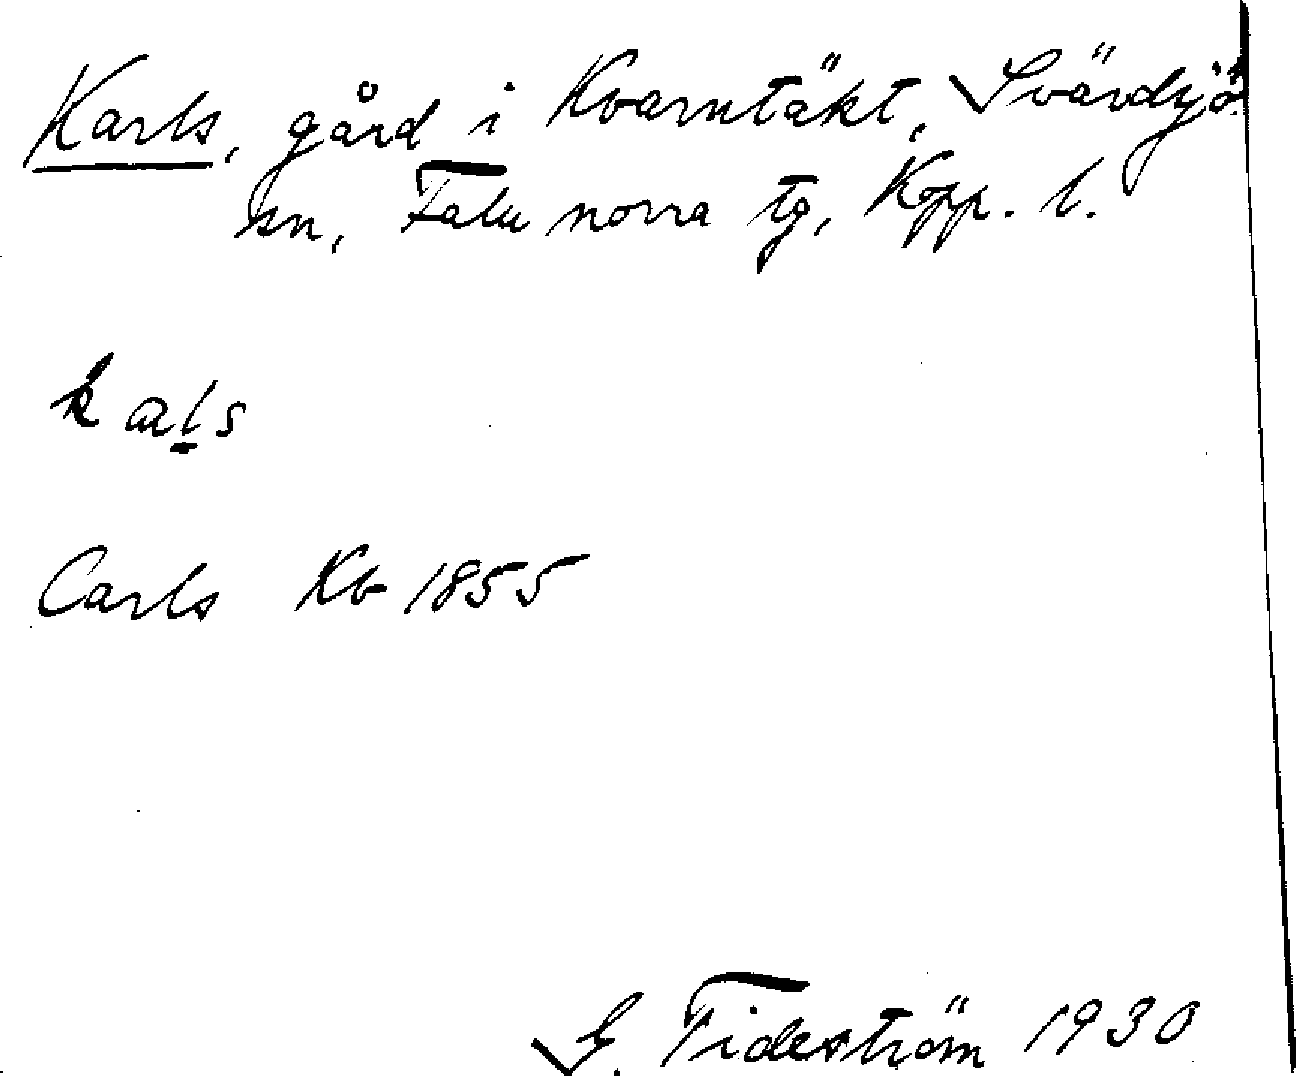 Karls, gård i Kvarntäkt, Svärdsjö
sn, Falu norra tg, Kopp. l.
kaḻs
Carls Kb 1855
G. Tideström 1930